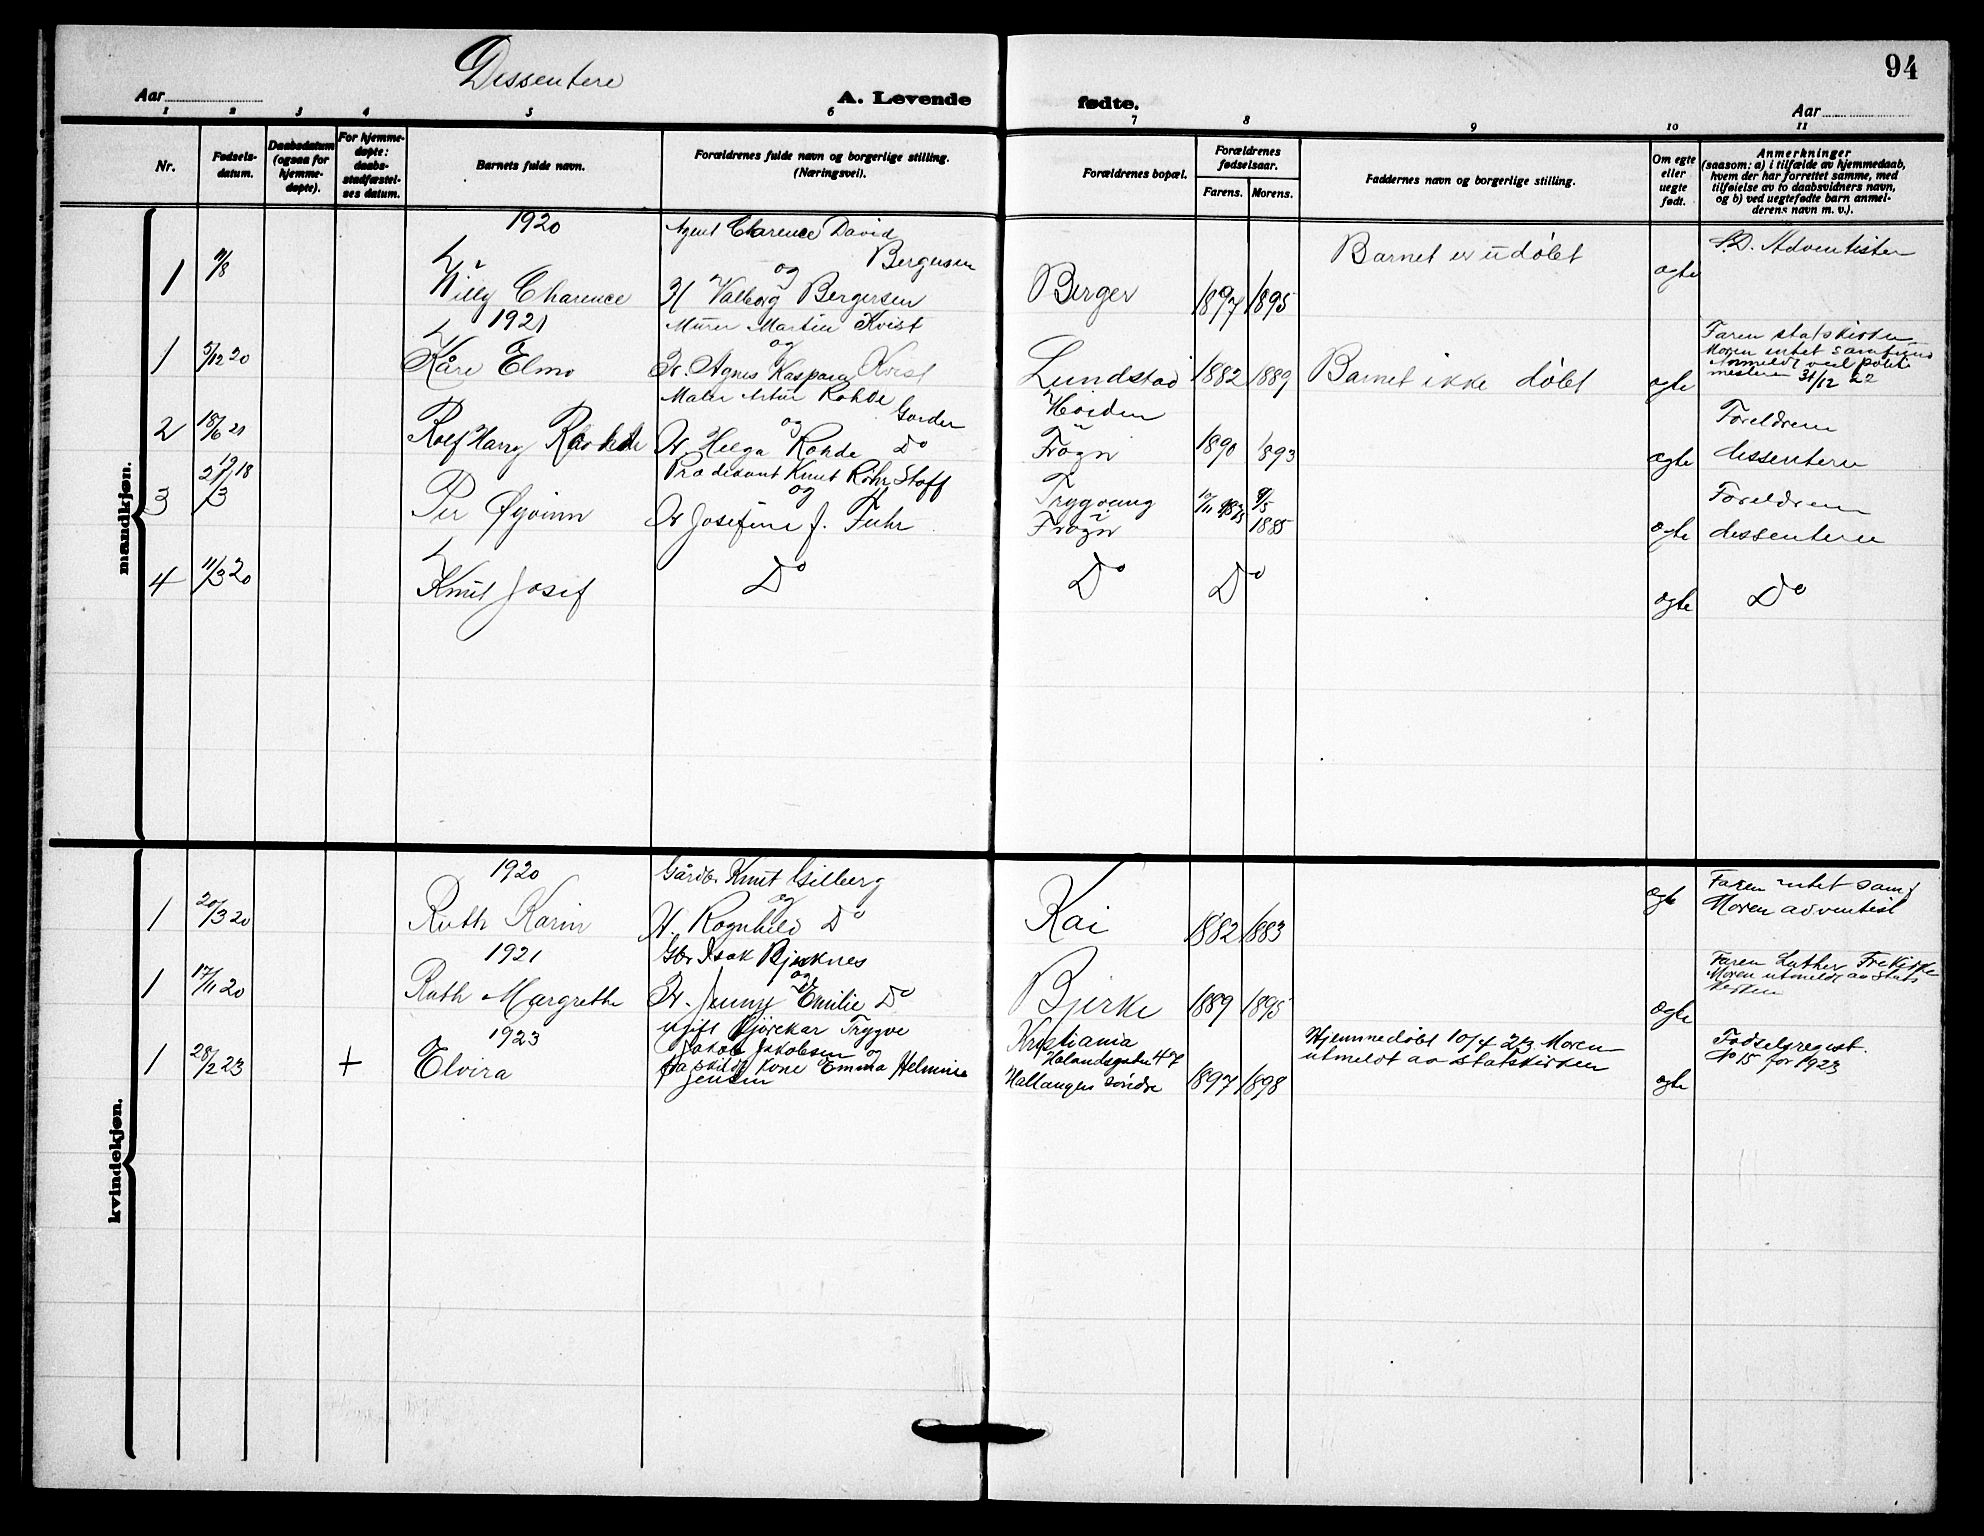 Dissentere
94
Aar
A. Levende
fødte.
Aar
1 2 3 4 5 6 7 8 9 10 11
Nr.
Fødsels-
datum.
Daabsdatum
(ogsaa for
hjemme-
døpte).
For hjemme-
døpte:
daabs-
stadfæstel-
ses datum.
Barnets fulde navn.
Forældrenes fulde navn og borgerlige stilling.
(Næringsvei).
Forældrenes bopæl.
Forældrenes
fødselsaar.
Farens. Morens.
Faddernes navn og borgerlige stilling.
Om egte
eller
uegte
født.
Anmerkninger
(saasom: a) i tilfælde av hjemmedaab,
hvem der har forrettet samme, med
tilføielse av to daabsvidners navn,
og b) ved uegtefødte barn anmel-
derens navn m. v.).
mandkjøn.
1920
Agent Clarence David
Bergersen
og
1 11/8 Willy Charence H Valborg Bergersen Berger 1897 1895 Barnet er udøbt egte S.D. Adventister
1921
Murer Martin Kvist
og
1 5/12 20 Kåre Elmo Hr. Agnes Kaspara Kvist Lundstad 1882 1889 Barnet ikke døbt egte
Faren statskirken
Moren intet samfund
Anmeldt ved politi
mesteren 31/12 22
Maler Artur Rohde
Gorder
og
2 18/6 21 Rolf Harry Rohde Hr Helga Rohde Do
Heiden
Frogn 1890 1893 egte
Foreldrene
dissentere
Predikant Knut Röhr Stoff
og
3 27/3 1918 Per Øyvinn Hr Josefine J. Fuhr
Trygvang
Frogn 10/11 1875 9/5 1885 egte
Foreldrene
dissentere
4 11/3 20 Knut Josef Do Do Do egte Do
kvindekjøn.
1920
Gårdbr Knut Gilberg
og
1 20/3 20 Ruth Karin H. Ragnhild Do Kai 1882 1883 egte
Faren intet samf
Moren adventist
1921
Gbr Isak Bjerknes
og
1 17/11 20 Ruth Margrethe Hr. Jenny Emilie Do Bjerke 1889 1895 egte
Faren Luther Frikirke
Moren utmeldt av Stats
kirken
1923
ugift Kjørekar Trygve
Jakob Jakobsen og
fraskildt kone Emma Helmine
Jensen
1 28/2 23 + Elvira
Kristiania
Helandsgaten 47
Hallangen söndre 1897 1898
Hjemmedøbt 10/4 23. Moren
utmeldt av statskirken
egte
Fødselsregist.
No 15 for 1923